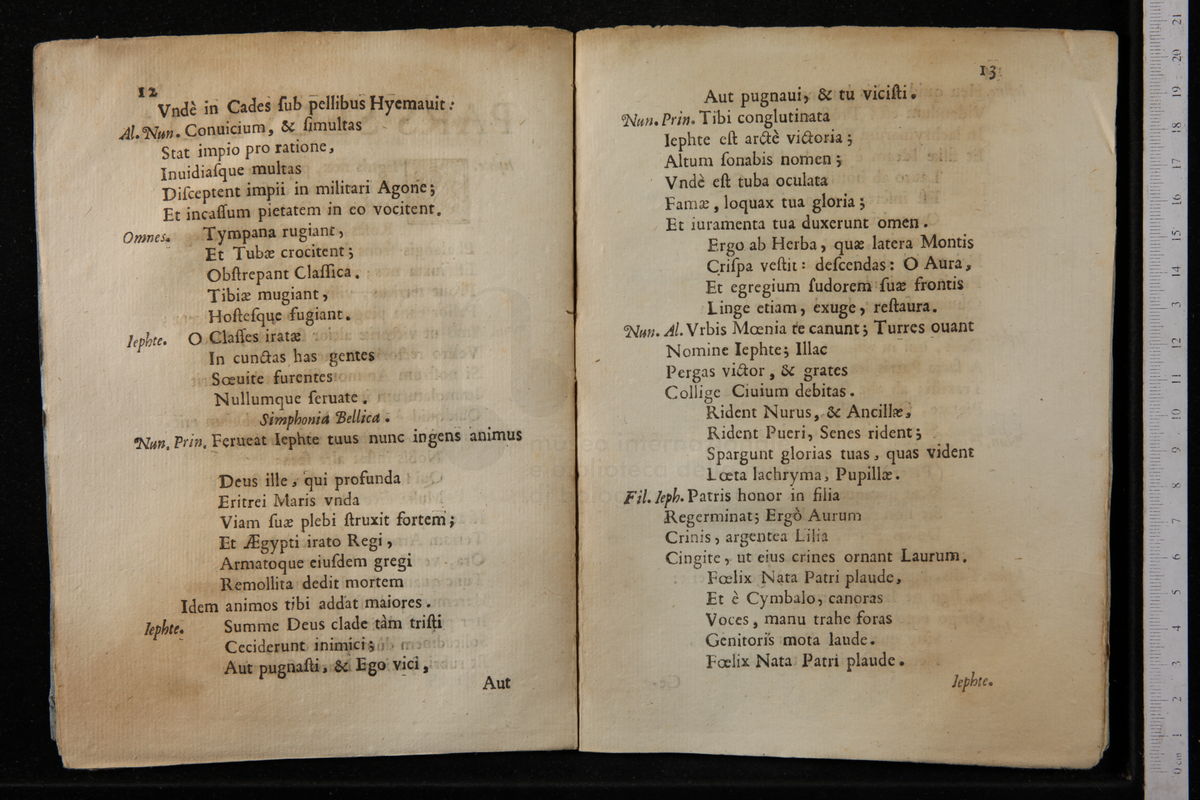 12
Vndè in Cades ſub pellibus Hyemauit:
Al. Nun. Conuicium, & ſimultas
Stat impio pro ratione,
Inuidiaſque multas
Diſceptent impii in militari Agone;
Et incaſſum pietatem in eo vocitent.
Omnes. Tympana rugiant,
Et Tubæ crocitent;
Obſtrepant Claſſica.
Tibiæ mugiant,
Hoſteſque fugiant.
Iephte. O Claſſes iratæ
In cunctas has gentes
Sœuite furentes
Nullumque ſeruate.
Simphonia Bellica.
Nun. Prin. Ferueat Iephte tuus nunc ingens animus
Deus ille, qui profunda
Eritrei Maris vnda
Viam ſuæ plebi ſtruxit fortem;
Et Ægypti irato Regi,
Armatoque eiuſdem gregi
Remollita dedit mortem
Idem animos tibi addat maiores.
Iephte. Summe Deus clade tàm triſti
Ceciderunt inimici;
Aut pugnaſti, & Ego vici,
Aut
13
Aut pugnaui, & tu viciſti.
Nun. Prin. Tibi conglutinata
Iephte eſt arctè victoria;
Altum ſonabis nomen;
Vndè eſt tuba oculata
Famæ, loquax tua gloria;
Et iuramenta tua duxerunt omen.
Ergo ab Herba, quæ latera Montis
Criſpa veſtit: deſcendas: O Aura,
Et egregium ſudorem ſuæ frontis
Linge etiam, exuge, reſtaura.
Nun. Al. Vrbis Mœnia te canunt; Turres ouant
Nomine Iephte; Illac
Pergas victor, & grates
Collige Ciuium debitas.
Rident Nurus, & Ancillæ,
Rident Pueri, Senes rident;
Spargunt glorias tuas, quas vident
Lœta lachryma, Pupillæ.
Fil. Ieph. Patris honor in filia
Regerminat; Ergò Aurum
Crinis, argentea Lilia
Cingite, ut eius crines ornant Laurum.
Fœlix Nata Patri plaude,
Et è Cymbalo, canoras
Voces, manu trahe foras
Genitoris mota laude.
Fœlix Nata Patri plaude.
Iephte.